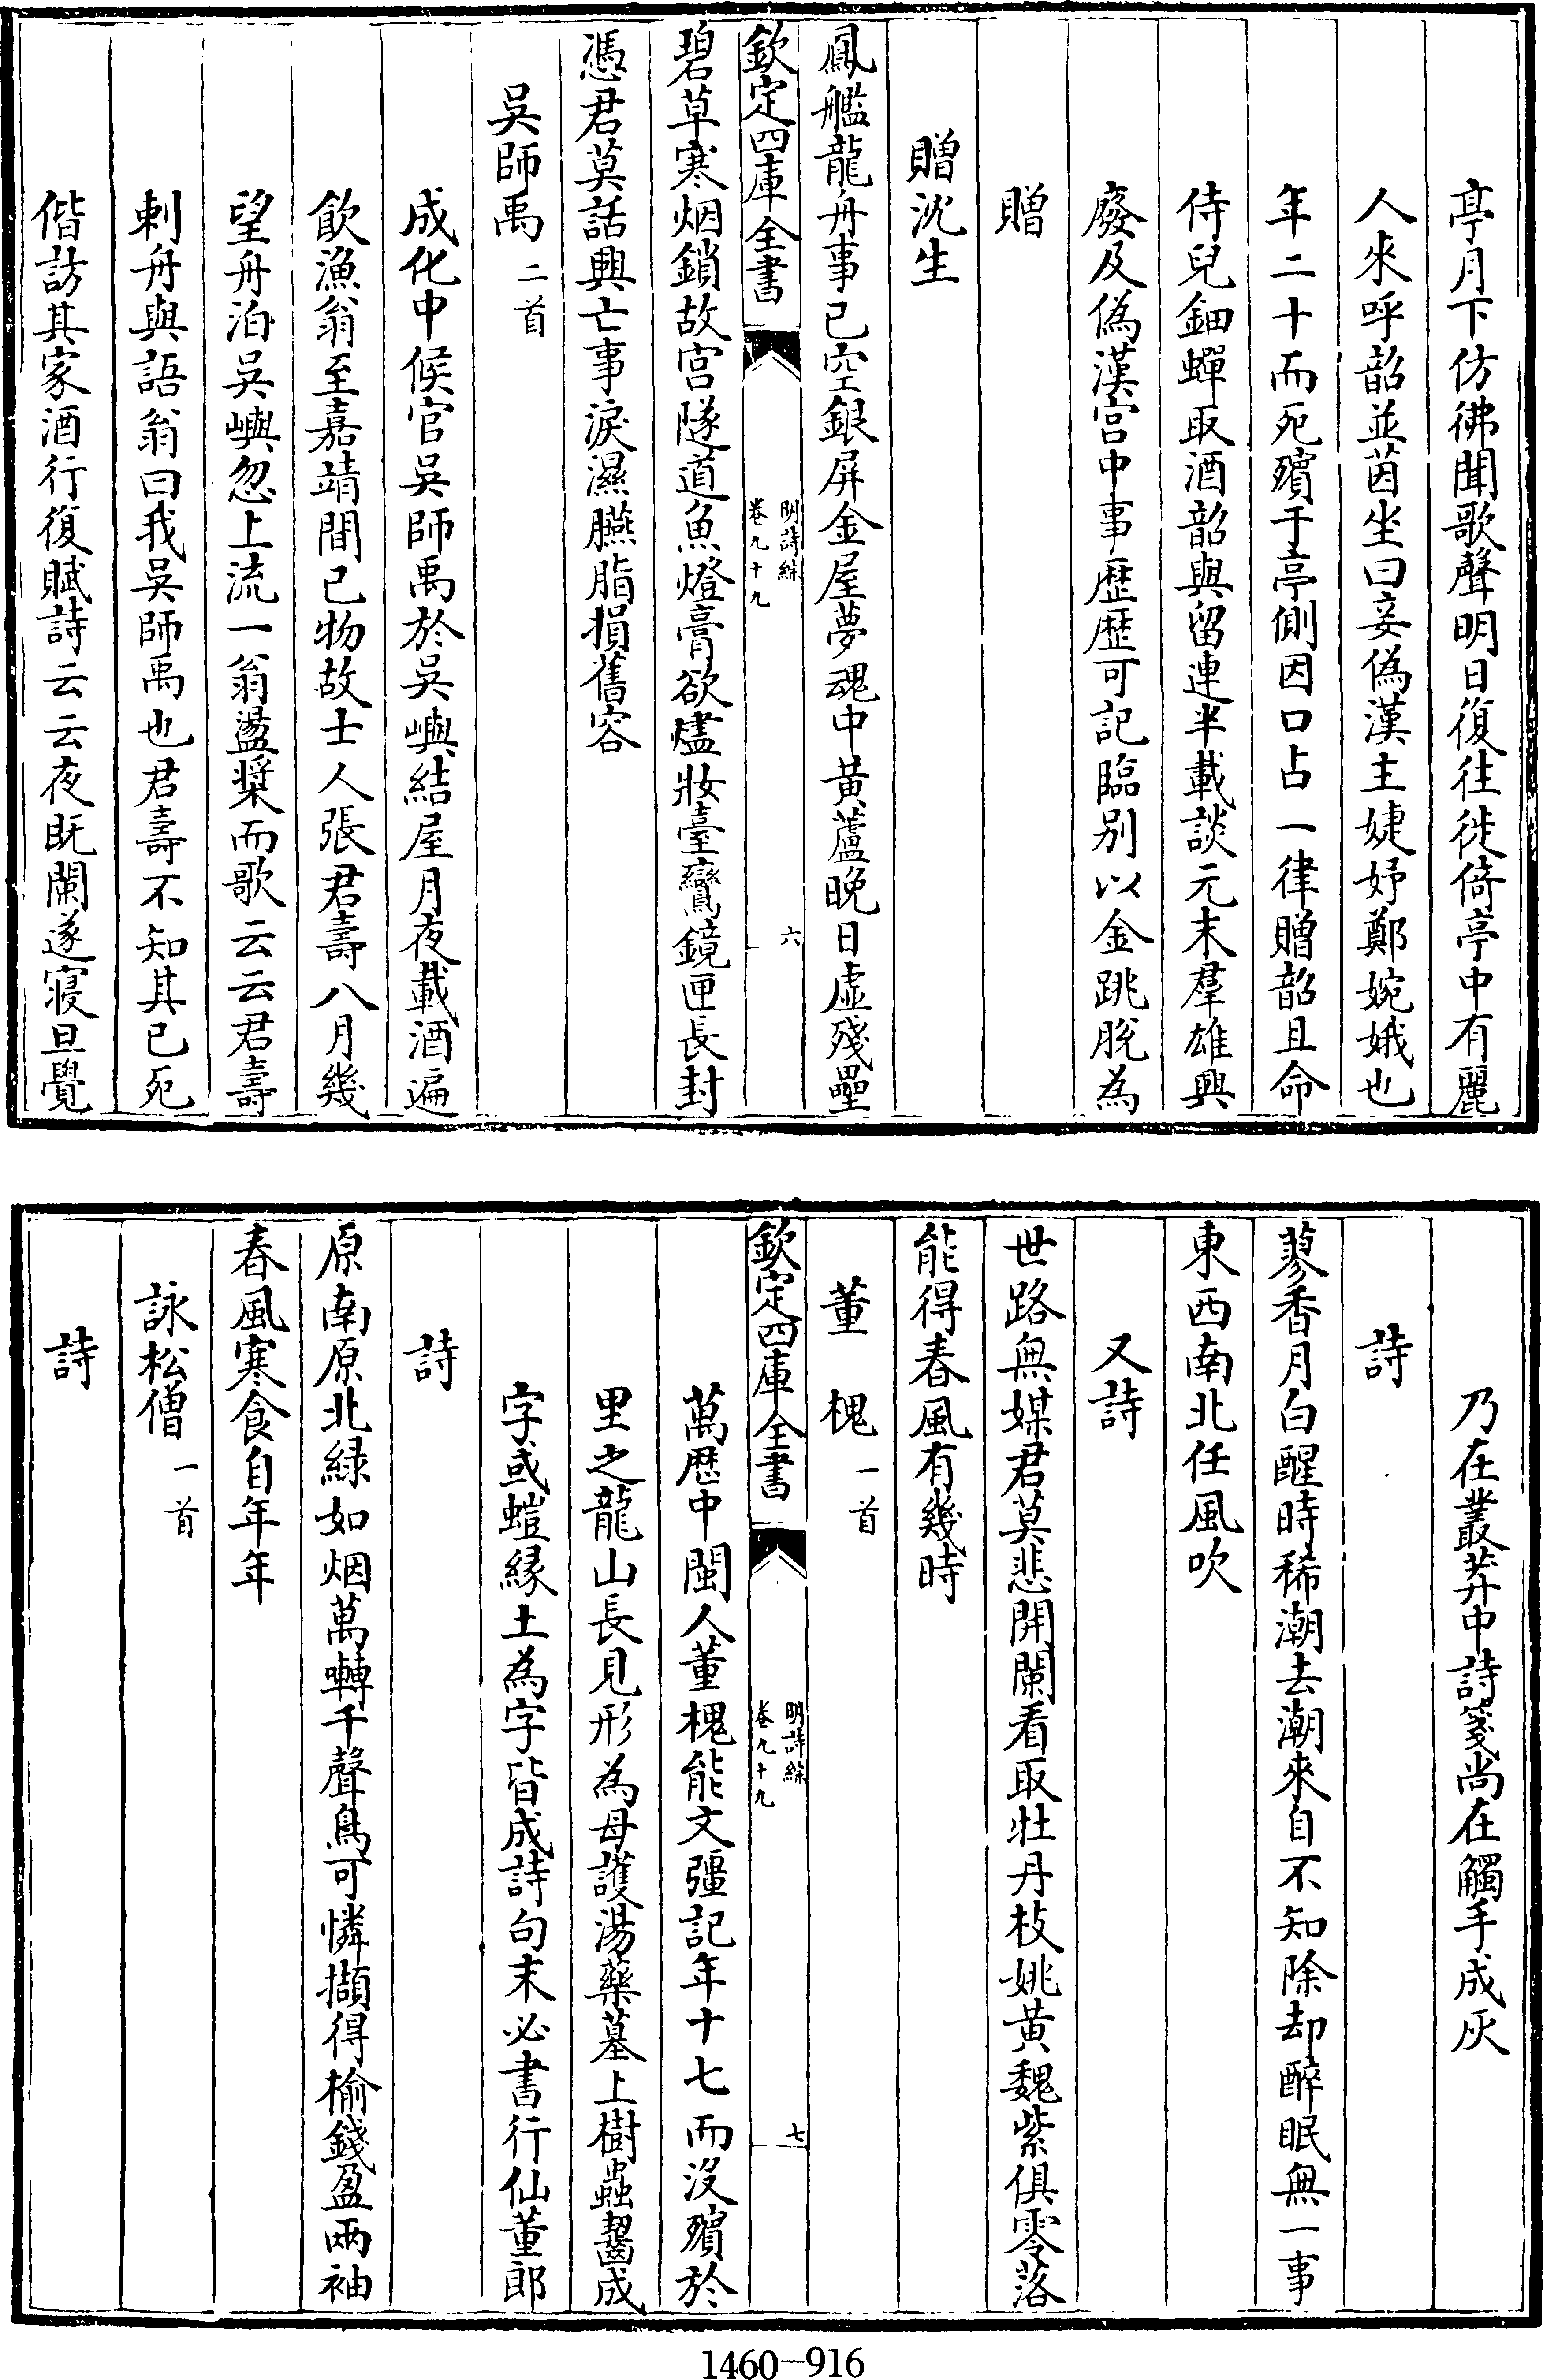 亭月下仿彿聞歌聲明日復往徙倚亭中有麗
人來呼韶並茵坐曰妾偽漢主婕妤鄭婉娥也
年二十而死殯于亭側因口占一律贈韶且命
侍兒鈿蟬取酒韶與留連半載談元末羣雄興
廢及偽漢宫中事歴歴可記臨别以金跳脫為
贈
贈沈生
鳳艦龍舟事已空銀屏金屋夢魂中黄蘆晚日虚殘壘
欽定四庫全書
明詩綜
卷九十九
六
碧草寒烟鎖故宫隧道魚燈膏欲燼妝臺鸞鏡匣長封
憑君莫話興亡事淚濕臙脂損舊容
吳師禹二首
成化中候官吳師禹於吳嶼結屋月夜載酒遍
飲漁翁至嘉靖間已物故士人張君壽八月幾
望舟泊吳嶼忽上流一翁盪槳而歌云云君壽
刺舟與語翁曰我吳師禹也君壽不知其已死
偕訪其家酒行復賦詩云云夜既闌遂寢旦覺
乃在叢莽中詩箋尚在觸手成灰
詩
蓼香月白醒時稀潮去潮來自不知除却醉眠無一事
東西南北任風吹
又詩
世路無媒君莫悲開闌看取牡丹枝姚黄魏紫俱零落
能得春風有幾時
董槐一首
欽定四庫全書
明詩綜
卷九十九
七
萬歴中閩人董槐能文彊記年十七而沒殯於
里之龍山長見形為母護湯藥墓上樹蟲齧成
字或螘緣土為字皆成詩句末必書行仙董郎
詩
原南原北緑如烟萬囀千聲鳥可憐擷得榆錢盈兩袖
春風寒食自年年
詠松僧一首
詩
1460-916